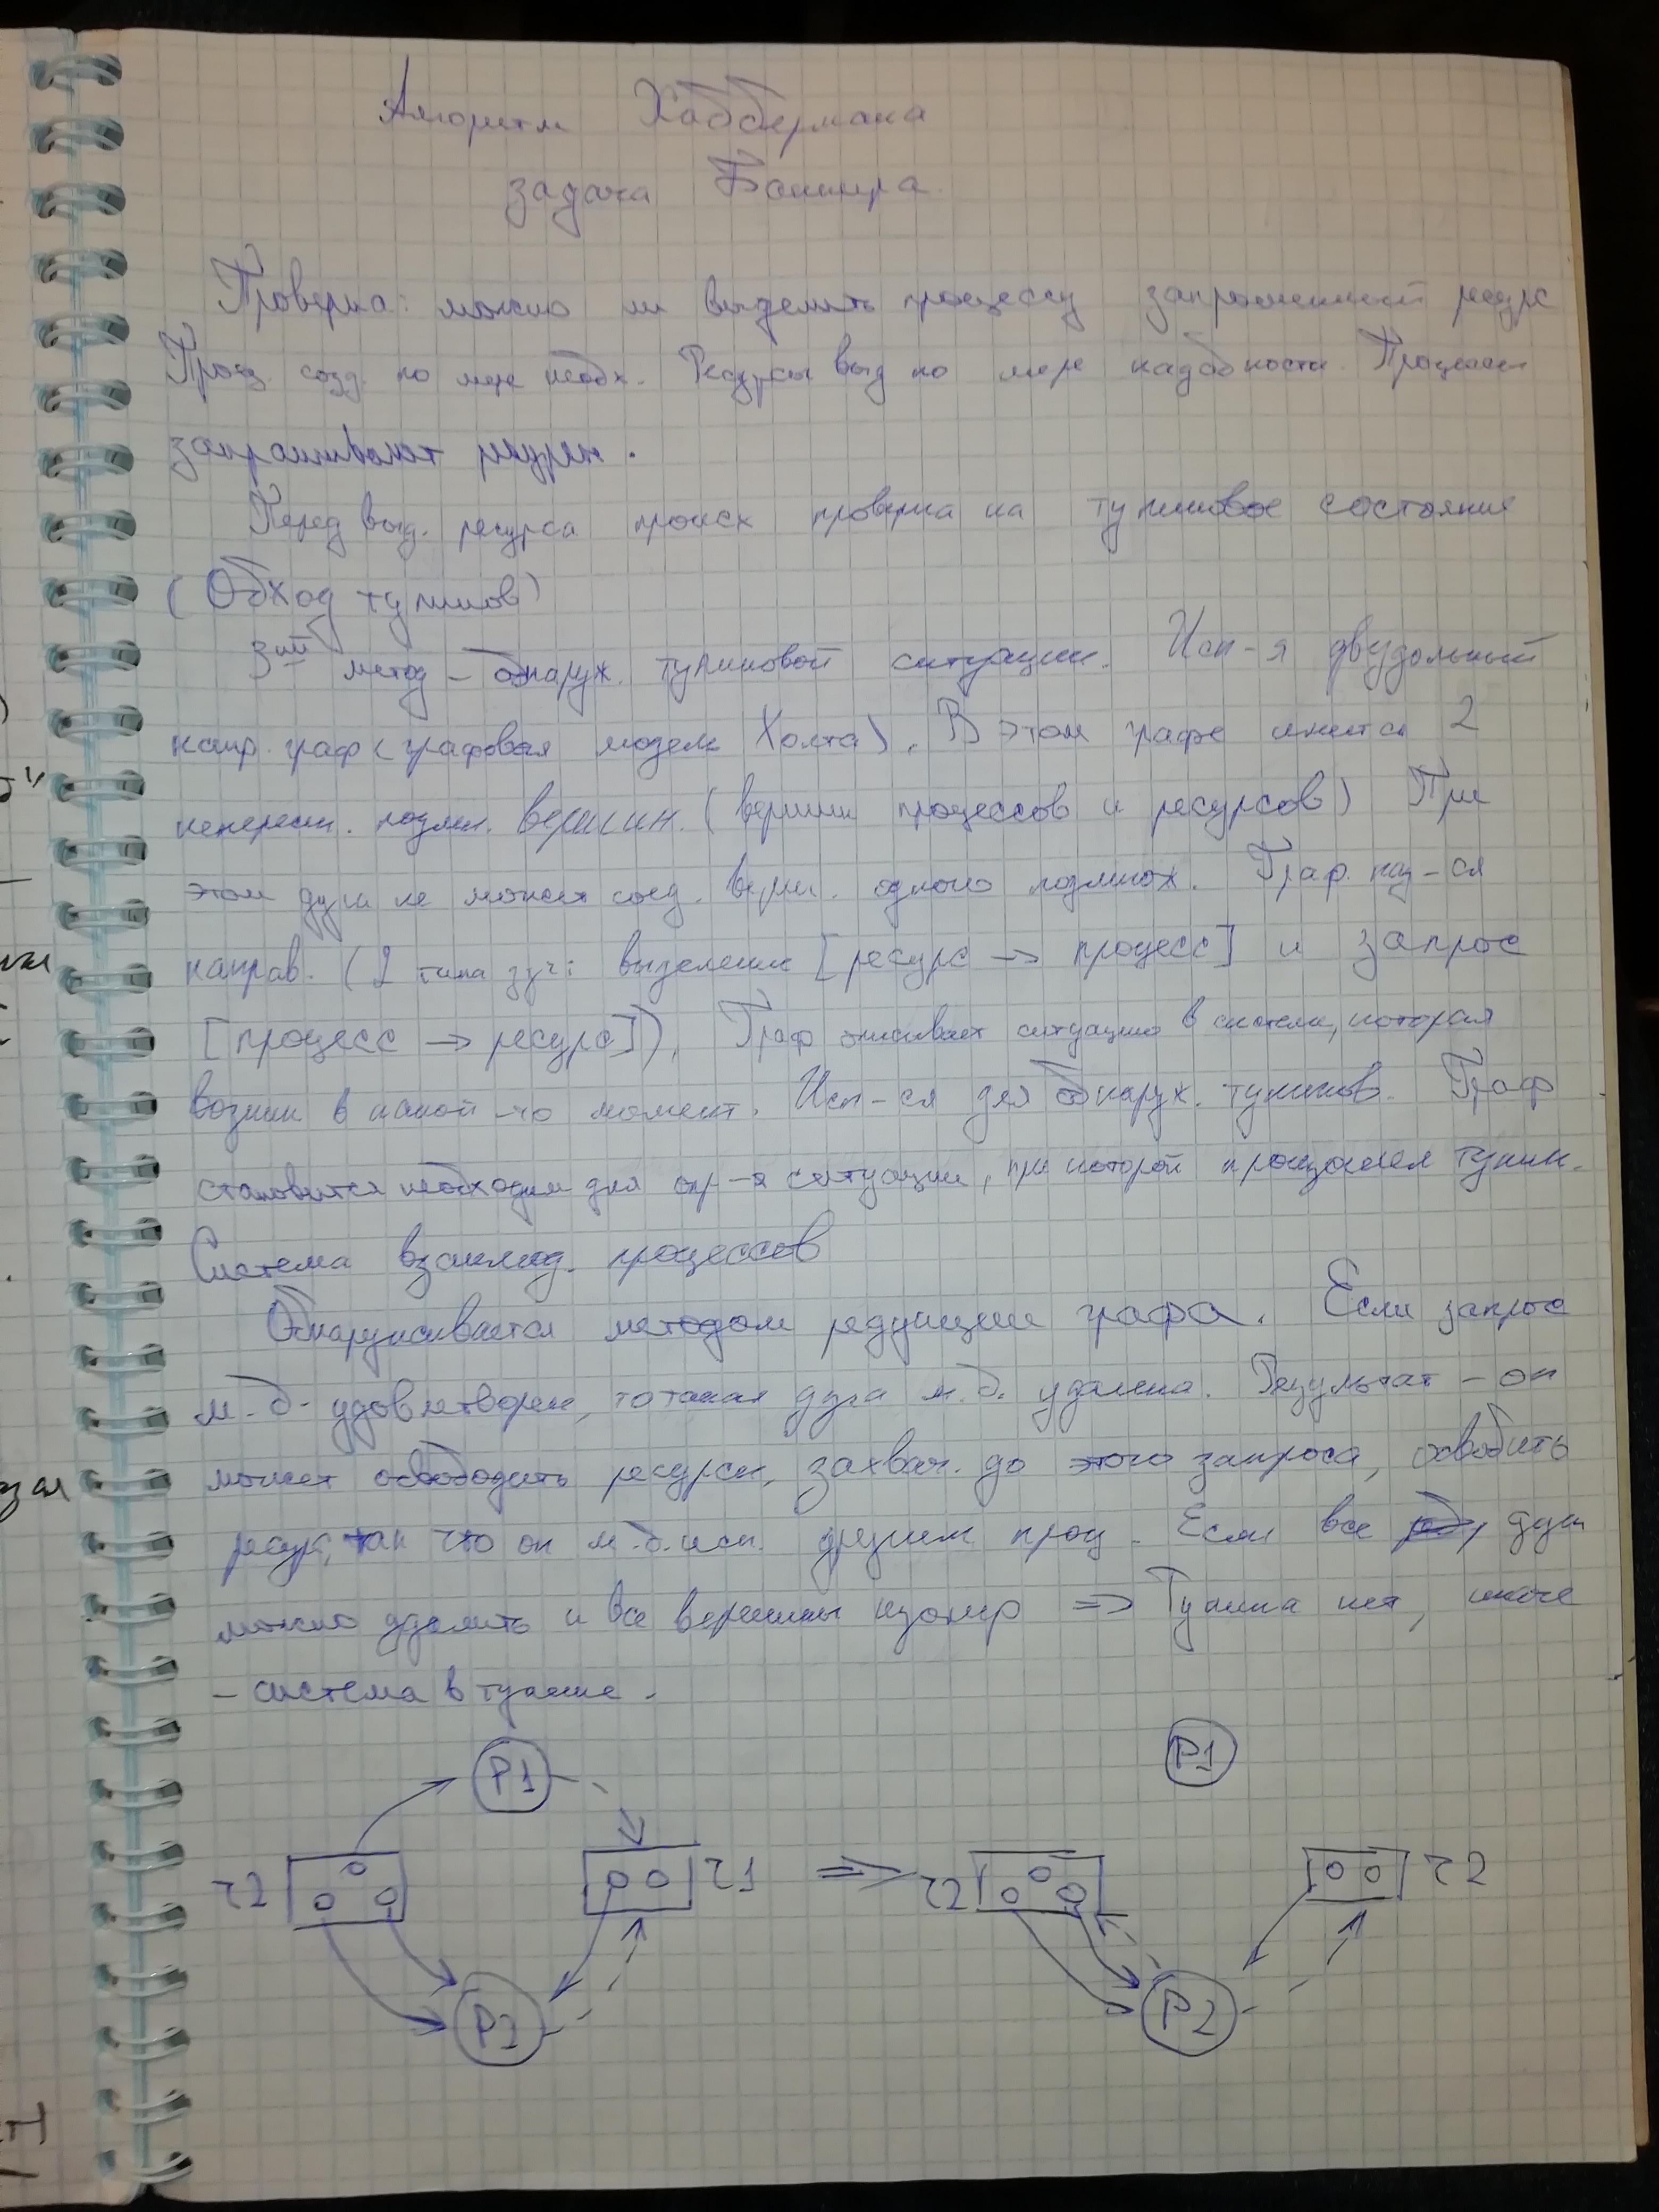 Алгоритм Хаббермана
задача Банкира.
Проверка: можно ли выделить процессу запрошенный ресурс
Проц. созд. по мере необх. Ресурсы выд по мере надобности. Процессы
запрашивают ресурсы.
Перед выд. ресурса происх проверка на тупиковое состояние
(Обход тупиков)
3ий метод – обнаруж. тупиковой ситуации. Исп-я двудольный
напр. граф (графовая модель Холта). В этом графе имеется 2
непересек. подмн. вершин. (вершины процессов и ресурсов) При
этом дуга не может соед. верш. одного подмнож. Граф. наз-ся
направ. (2 типа дуг: выделение [ресурс → процесс] и запрос
[процесс → ресурс]). Граф описывает ситуацию в системе, которая
возник в какой-то момент. Исп-ся для обнаруж. тупиков. Граф
становится необходим для опр-я ситуации, при которой произошел тупик.
Система взаимод. процессов
Обнаруживается методом редукции графа. Если запрос
м.б. удовлетворен, то такая дуга м.б. удалена. Результат – он
может освободить ресурсы, захвач. до этого запроса, освободить
ресурс, так что он м.б. исп. другим проц. Если все дуги
можно удалить и все вершины изолир => Тупика нет, иначе
– система в тупике.
P1 P1
r2 r1 => r2 r2
P2 P2